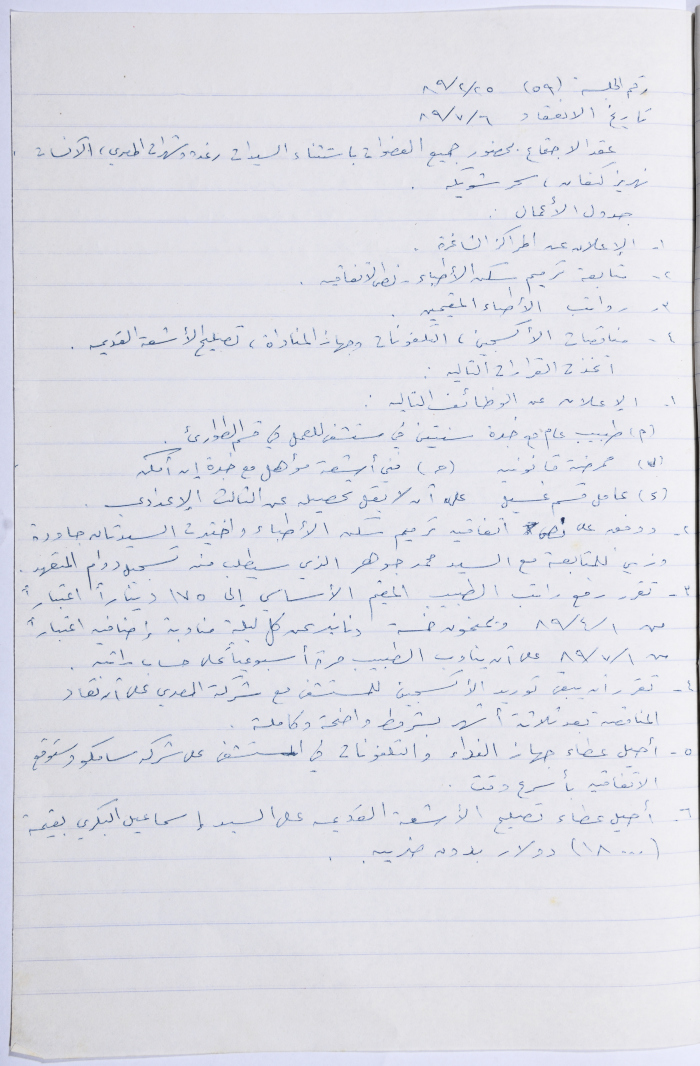 رقم الجلسة (٥٩) ٨٩/٢/٢٥
تاريخ الانعقاد ٨٩/٧/٦
عقد الاجتماع بحضور جميع العضوات باستثناء السيدات رغدة وشهرات المصري، الآنسات
نهريز كنعان، سحر شويكه .
جدول الأعمال :
١- الإعلان عن المراكز الشاغرة .
٢- متابعة ترميم سكن الأطباء - نص الاتفاقيه .
٣- رواتب الأطباء المقيمين .
٤- مناقصات الأكسجين، التلفونات وجهاز المناداة، تصليح الأشعة القديمه .
اتخذت القرارات التاليه :
١- الإعلان عن الوظائف التاليه :
(م) طبيب عام مع خبرة سنتين في مستشفى للعمل في قسم الطوارئ .
(ب) ممرضة قانونيه (ج) فني أشعة مؤهل مع خبرة إن أمكن
(د) عامل قسم غسيل على أن لا يقل تحصيله عن الثالث الإعدادي .
٢- ووفق على نص اتفاقيه ترميم سكن الأطباء واختيرت السيدتان جاودة
وزيني للمتابعة مع السيد محمد جوهر الذي سيطلب منه تسجيل دوام المتعهد .
٣- تقرر رفع راتب الطبيب المقيم الأساسي إلى ١٧٥ ديناراً اعتباراً
من ٨٩/٤/١ ويمنحون خمسة دنانير عن كل ليلة مناوبة إضافيه اعتباراً
من ٨٩/٧/١ على أن يناوب الطبيب مرة أسبوعياً على حساب راتبه .
٤- تقرر أن يبقى توريد الأكسجين للمستشفى مع شركة المصري على أن تعاد
المناقصة بعد ثلاثة أشهر بشروط واضحة وكاملة .
٥- أحيل عطاء جهاز النداء والتلفونات في المستشفى على شركة سامكو وستوقع
الاتفاقيه بأسرع وقت .
٦- أحيل عطاء تصليح الأشعة القديمه على السيد إسماعيل البكري بقيمة
(١٨٠٠٠) دولار بدون ضريبه .